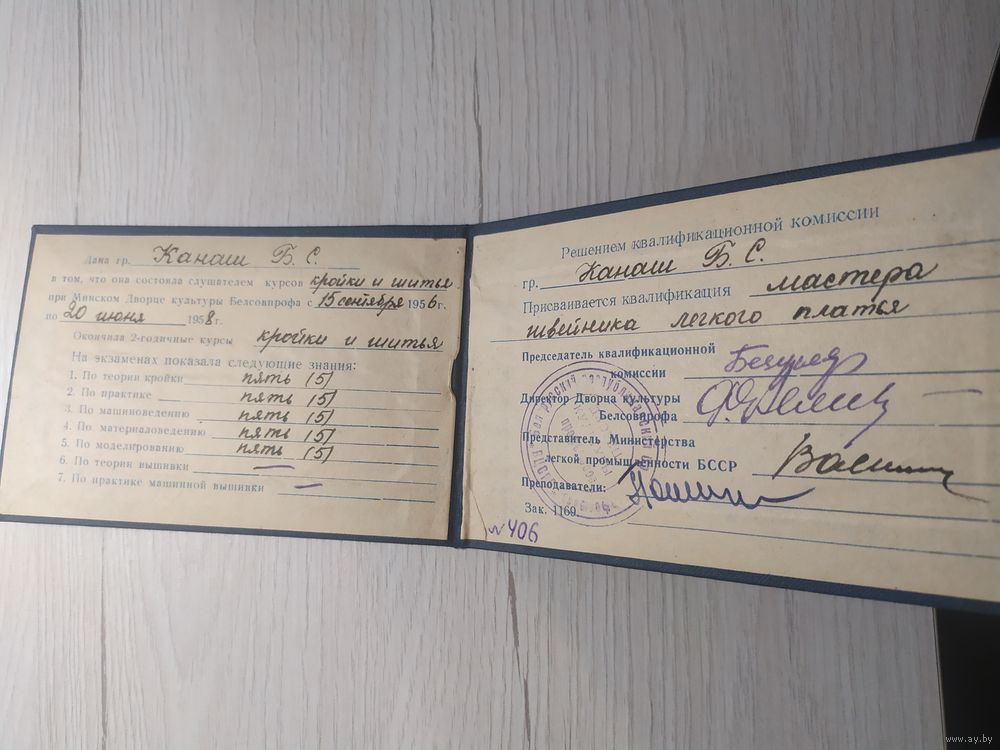 Дана гр. Канаш Б. С.
в том, что она состояла слушателем курсов кройки и шитья
при Минском Дворце культуры Белсовпрофа с 15 сентября 1956 г.
по 20 июня 1958 г.
Окончила 2-годичные курсы кройки и шитья
На экзаменах показала следующие знания:
1. По теории кройки пять (5)
2. По практике пять (5)
3. По машиноведению пять (5)
4. По материаловедению пять (5)
5. По моделированию пять (5)
6. По теории вышивки —
7. По практике машинной вышивки —
Решением квалификационной комиссии
гр. Канаш Б. С.
Присваивается квалификация мастера
швейника легкого платья
Председатель квалификационной
комиссии
Директор Дворца культуры
Белсовпрофа
Представитель Министерства
легкой промышленности БССР
Преподаватели:
Зак. 1169.
№ 406
www.ay.by